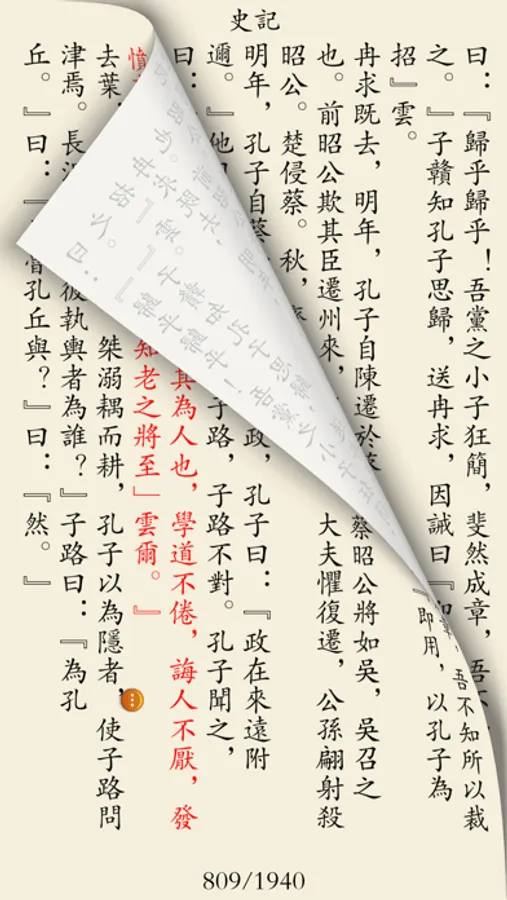 史記
曰：『歸乎歸乎！吾黨之小子狂簡，斐然成章，吾不知所以裁
之。』子贛知孔子思歸，送冉求，因誡曰『即用，以孔子為
招』雲。
冉求既去，明年，孔子自陳遷於蔡 蔡昭公將如吳，吳召之
也。前昭公欺其臣遷州來， 大夫懼復遷，公孫翩射殺
昭公。楚侵蔡。秋，
明年，孔子自蔡 政，孔子曰：『政在來遠附
邇。』他日 子路，子路不對。孔子聞之，
曰： 其為人也，學道不倦，誨人不厭，發
憤 知老之將至」雲爾。』
去葉， 桀溺耦而耕，孔子以為隱者，使子路問
津焉。長 彼執輿者為誰？』子路曰：『為孔
丘。』曰：『 魯孔丘與？』曰：『然。』
809/1940